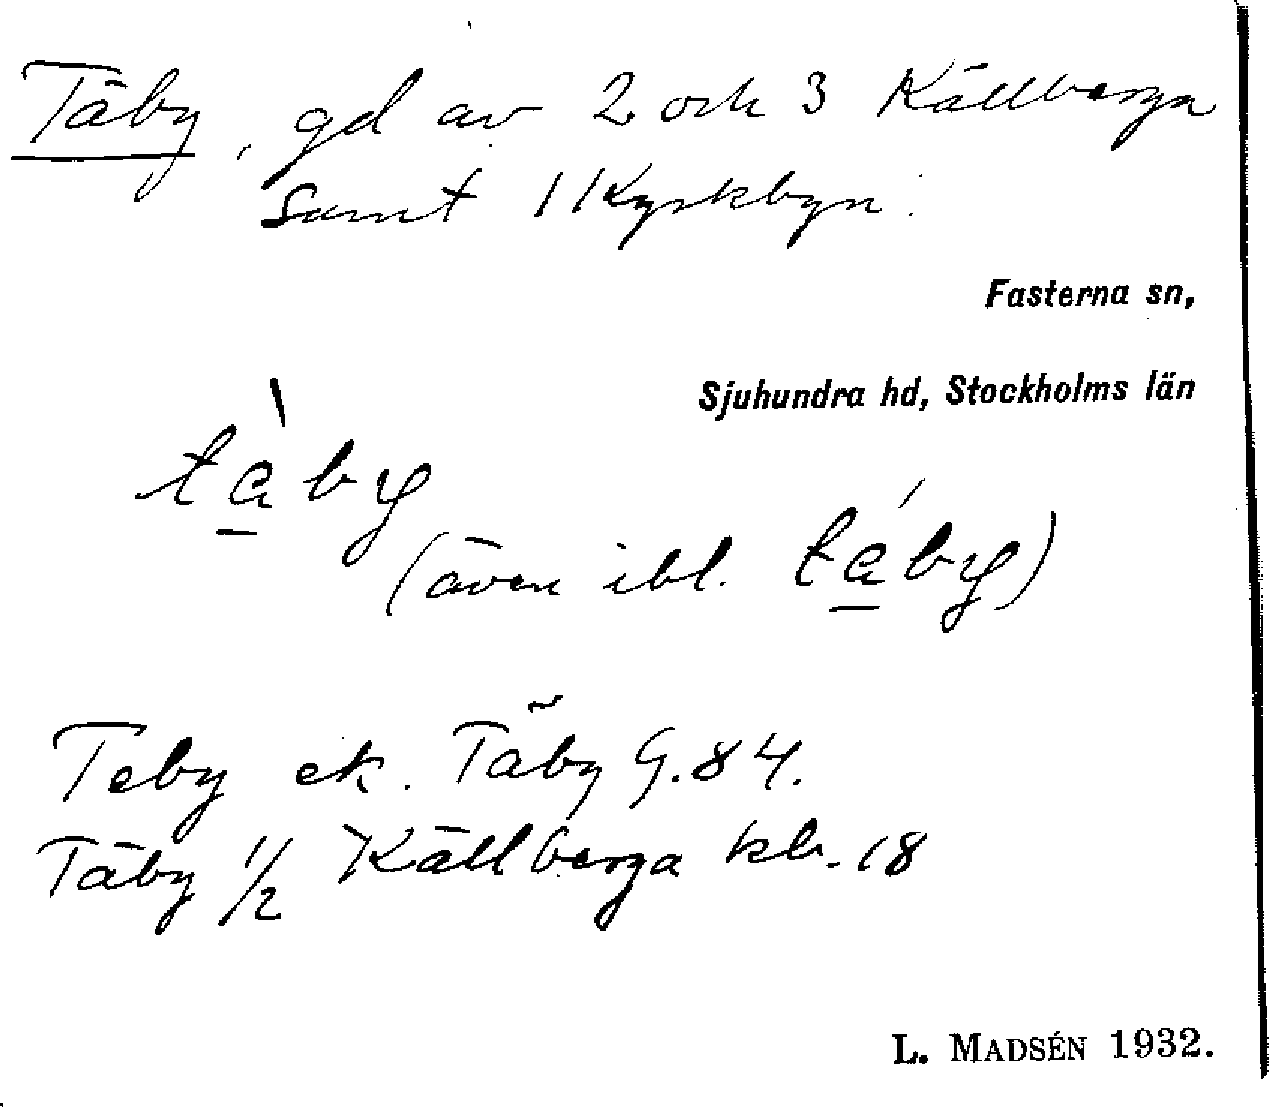 Täby, gd av 2 och 3 Källberga
samt 1 Kyrkbyn.
Fasterna sn,
Sjuhundra hd, Stockholms län
tàby
(även ibl. táby)
Teby ek. Täby G.84.
Täby 1/2 Källberga kb. 18
L. MADSÉN 1932.